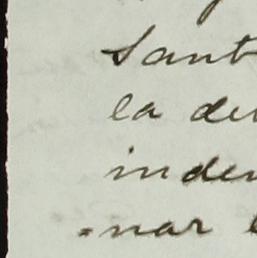 Sant
la de
inden
=nar